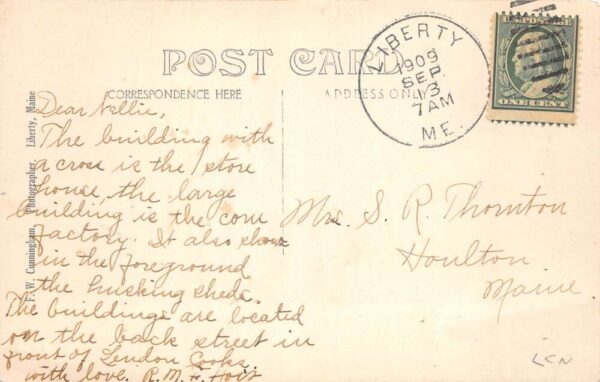 POST CARD
CORRESPONDENCE HERE
ADDRESS ONLY
F. W. Cunningham, Photographer, Liberty, Maine
LIBERTY
1909
SEP
13
7AM
ME.
U.S. POSTAGE
ONE CENT
Dear Nellie,
The building with
a cross is the store
house, the large
building is the corn
factory. It also shows
in the foreground
the husking sheds.
The buildings are located
on the back street in
front of Lendon Cooks
with love. R. M. F. Hoit
Mrs. S. R. Thornton
Houlton
Maine
LCN